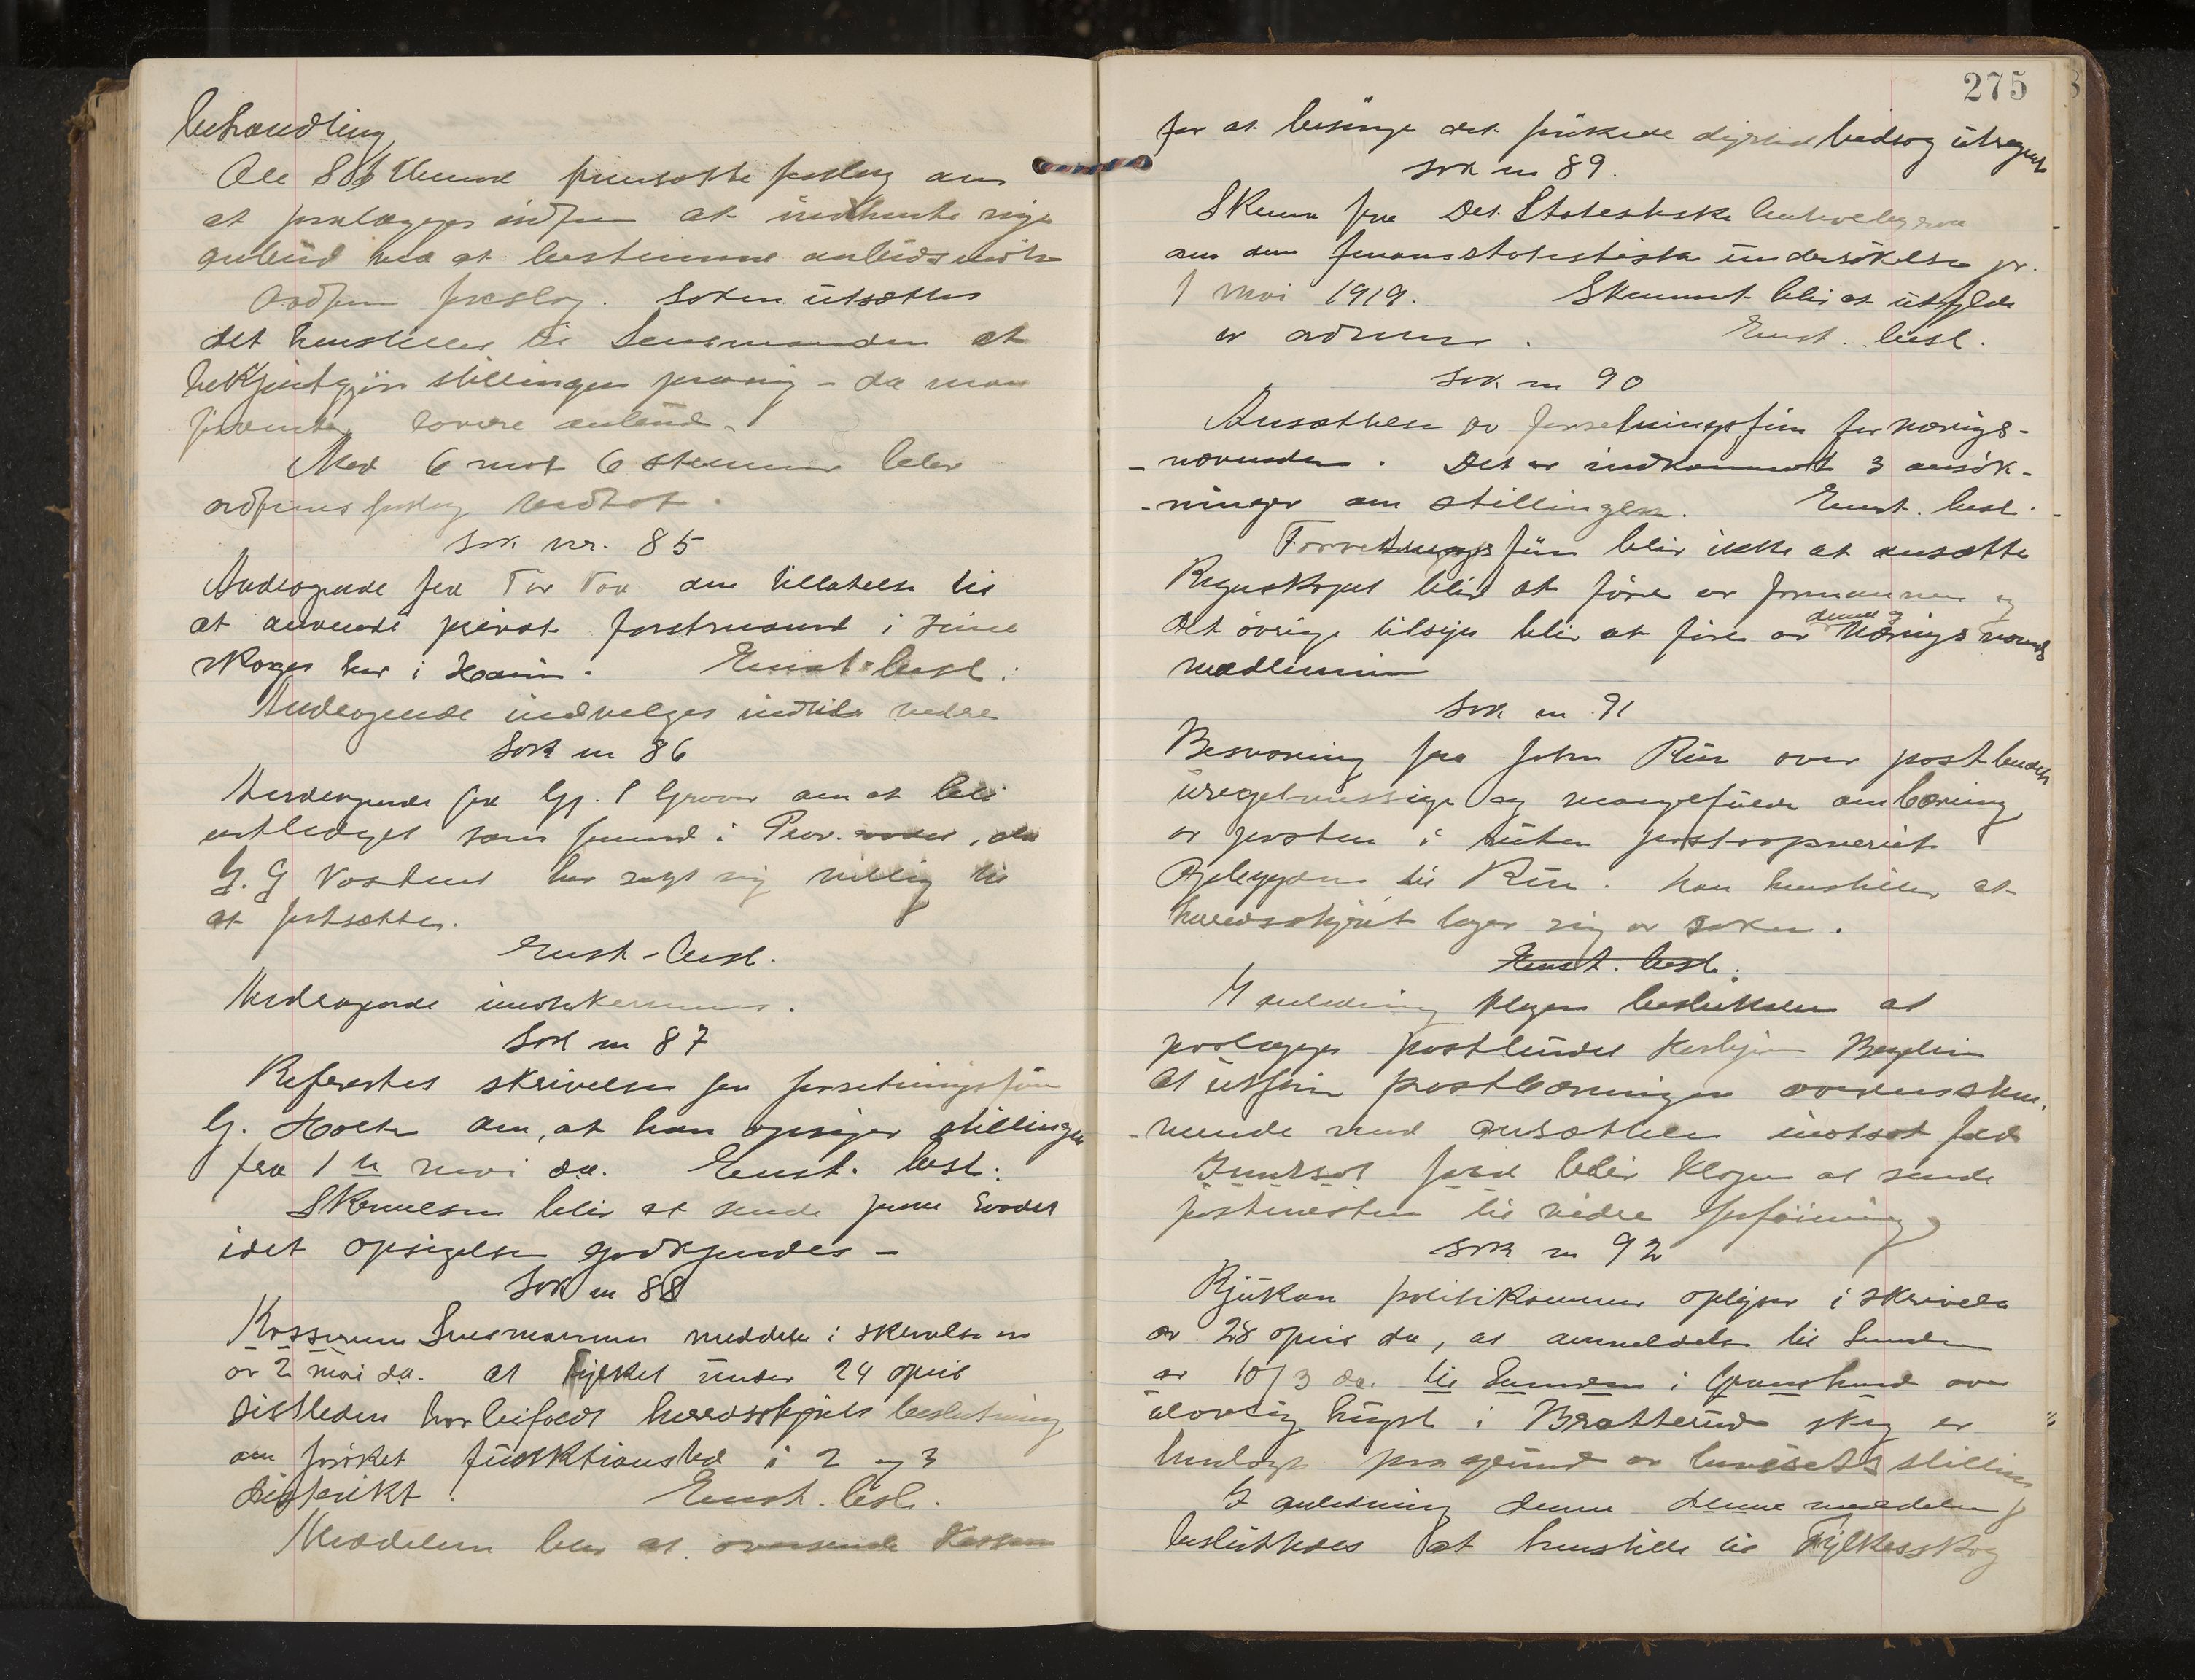 behandling
Ole fremsatte forslag om
at at indhente nye
anbud ved at bestemme anbuds
Ordføre forslag. Saken utsættes
det henstilles til Lensmanden at
bekjentgjøre stillingen paany - da man
forventer lavere anbud.
Med 6 mot 6 stemmer blev
ordførers forslag vedtat.
Sak nr. 85
Andragende fra Tov om tillatelse til
at anvende privat forstmand i sine
skoger her i Enst. besl.
Andragende indvilges indtil videre
Sak nr 86
Andragende fra Gj. om at bli
entlediget som i Prov. da
G. G har sagt sig villig til
at fortsætte.
Enst - besl.
Andragende imøtekommes.
Sak nr 87
Refertes skrivelse fra forretningsfører
G. Holte om, at han opsiger stillingen
fra 1 mai da. Enst. besl.
Skrivelsen blir at sende
idet opsigelsen godkjendes -
Sak nr 88
Kasserer Lensmannen meddeler i skrivelse
av 2 mai da. at fylket under 24 april
sistleden har bifaldt herredsstyrets beslutning
om forøket funktionstid i 2 og 3
distrikt. Enst. besl.
Meddelelsen blev at oversende
275
for at besørge det dyrtidsbidrag utregnet
sak nr 89.
Skema fra Det Statistiske Centralbyraa
om den finansstatistiske undersøkelse pr.
1 mai 1919. Skemaet blir at utfylde
av ordføreren. Enst. besl.
Sak nr 90
Ansættelse av forretningsfører for nærings-
- nævnden. Det er indkommet 3 ansøk-
- ninger om stillingen. Enst. besl.
Forretningsfører blir ikke at ansætte
Regnskapet blir at føre av formannen og
det øvrige tilsyn blir at føre av denne og Nærings nævnds
medlemmer
Sak nr 91
Besværing fra John Rue over postbudets
uregelmessige og mangelfulde ombæring
av posten i ruten postaapneriet
til Rue. Han henstiller at
herredsstyret tager sig av saken.
Enst. besl.
I anledning klagen besluttedes at
paalægge postbudet
at utføre postbæringen overensstem-
- mende med ansættelsen imotsat fald
Imotsat fald blir klagen at sende
postmesteren til videre forføining
sak nr 92
Rjukan politikammer oplyser i skrivelse
av 28 april da, at anmeldelse til
av 10/3 da. til i over
ulovlig hugst i Bratterud skog er
henlagt paa grund av bevisets stilling
I anledning denne denne meddelelse
besluttedes at henstille til Fylkesskog